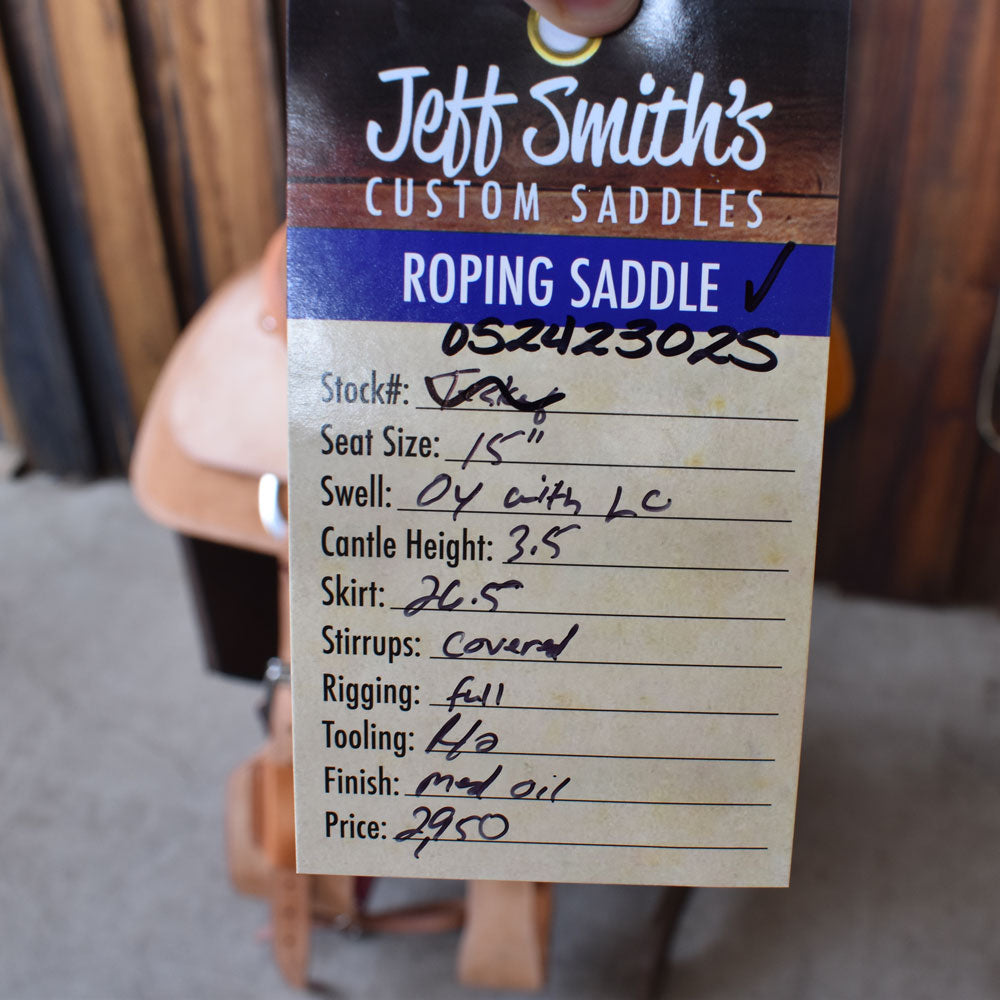 Jeff Smith's
CUSTOM SADDLES
ROPING SADDLE ✓
052423025
Stock#:
Seat Size: 15"
Swell: Oy with LC
Cantle Height: 3.5
Skirt: 26.5
Stirrups: covered
Rigging: full
Tooling:
Finish: med oil
Price: 2,950